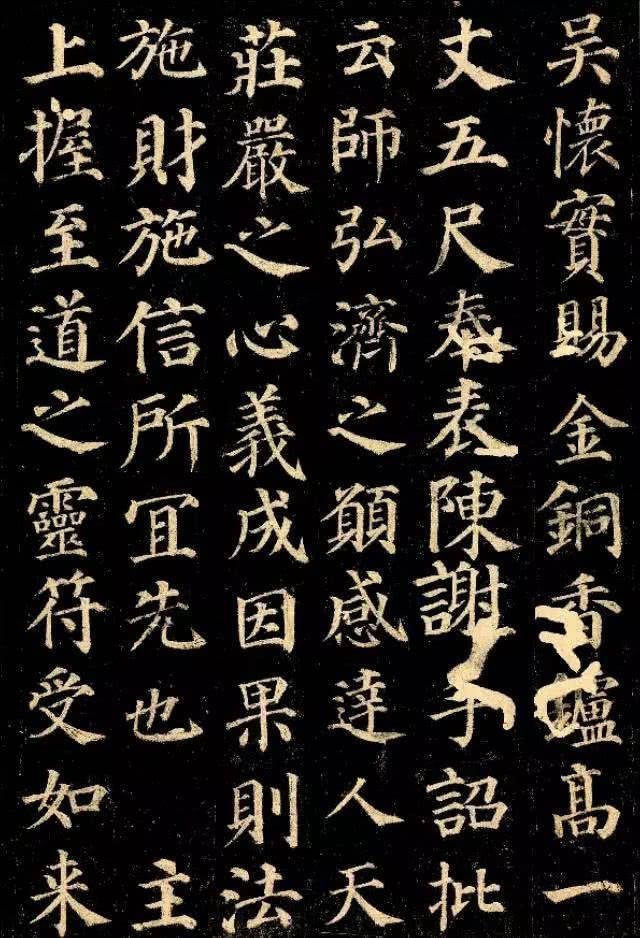 吴懷實賜金銅香鑪髙一
丈五尺奉表陳謝手詔批
云師弘濟之願感達人天
莊嚴之心義成因果則法
施財施信所冝先也 主
上握至道之靈符受如来